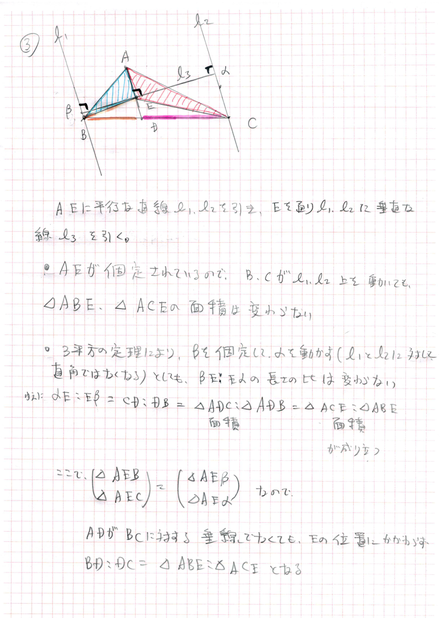 ③
l₁
l₂
A
l₃
α
β
E
B
D
C
AEに平行な直線l₁, l₂を引き、Eを通りl₁, l₂に垂直な
線 l₃ を引く。
• AEが固定されているので、B, Cがl₁, l₂ 上を動いても、
△ABE、△ACEの面積は変わらない
• 3平方の定理により、βを固定して、αを動かす(l₁とl₂に対して
直角ではなくなる)としても、βE:Eαの長さの比は変わらない
ゆえに αE:Eβ = CD:DB = △ADC:△ADB = △ACE:△ABE
面積 面積
が成り立つ
ここで、(△AEB △AEC) = (△AEβ △AEα) なので
ADがBCに対する 垂線でなくても、Eの位置にかかわらず
BD:DC = △ABE:△ACE となる